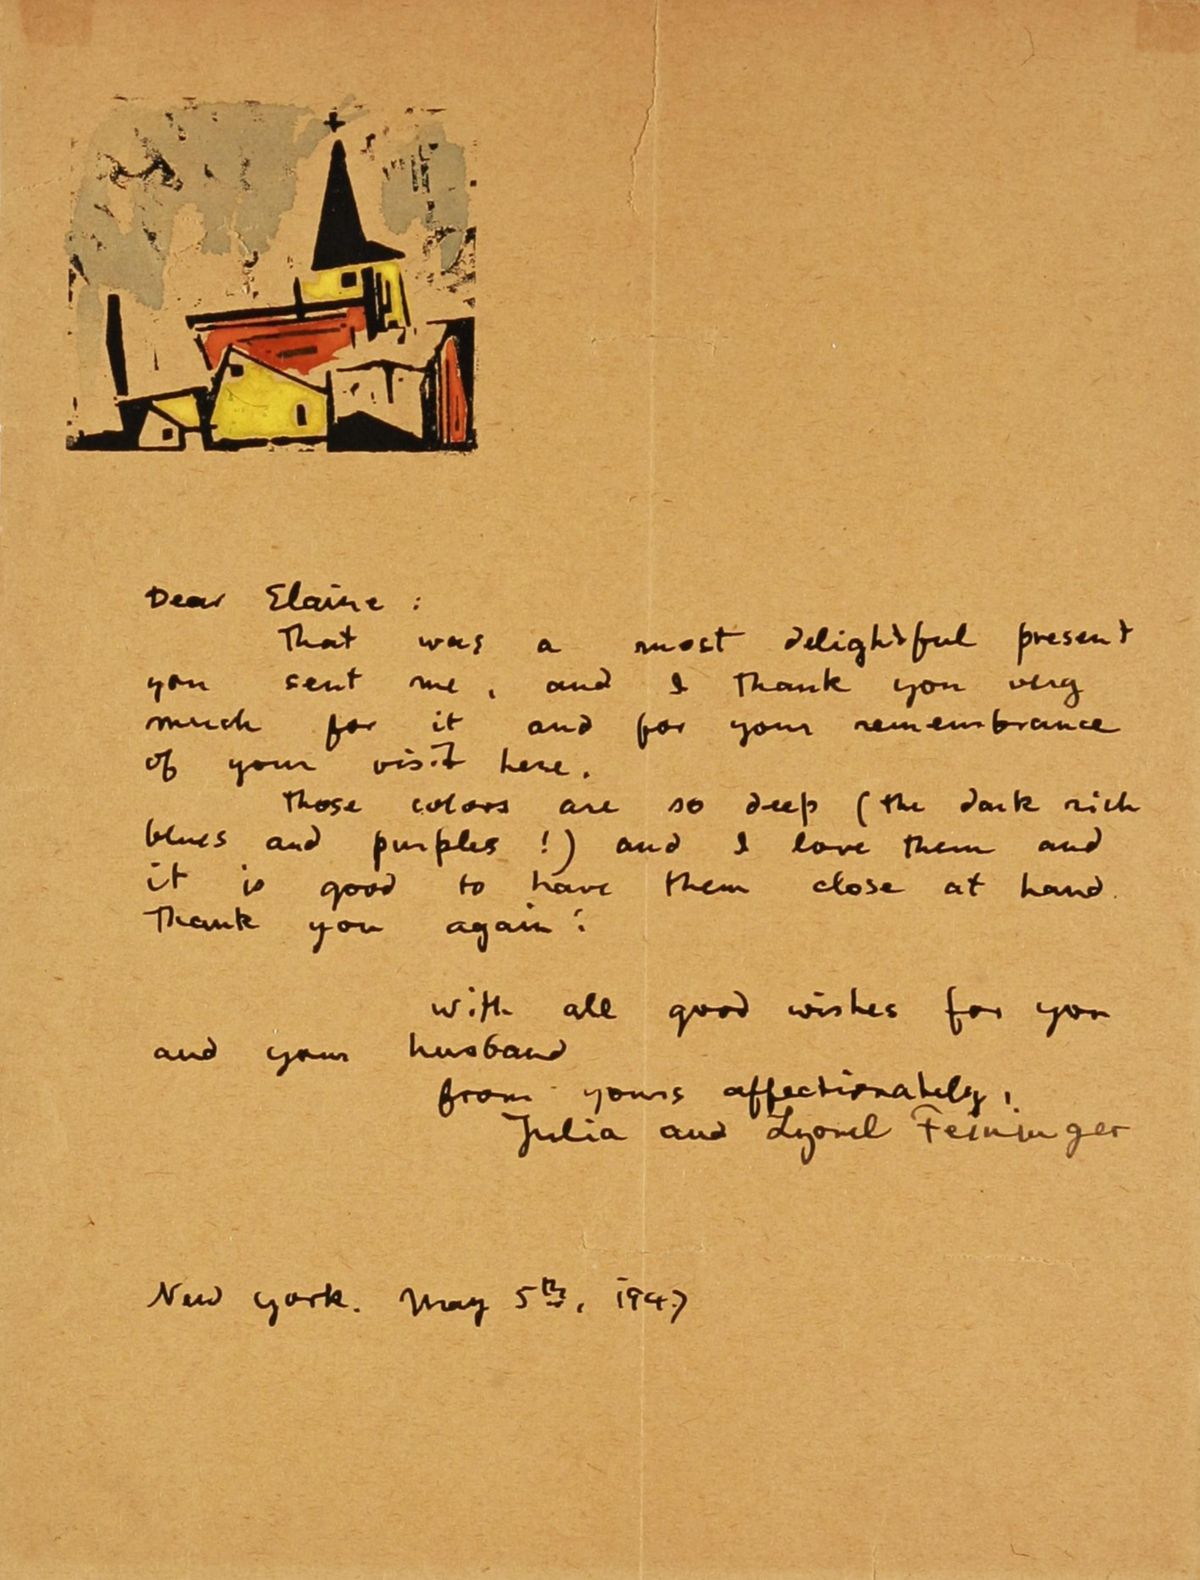 Dear Elaine :
That was a most delightful present
you sent me, and I thank you very
much for it and for your remembrance
of your visit here.
Those colors are so deep (the dark rich
blues and purples !) and I love them and
it is good to have them close at hand.
Thank you again!
With all good wishes for you
and your husband
from yours affectionately,
Julia and Lyonel Feininger
New York. May 5th, 1947